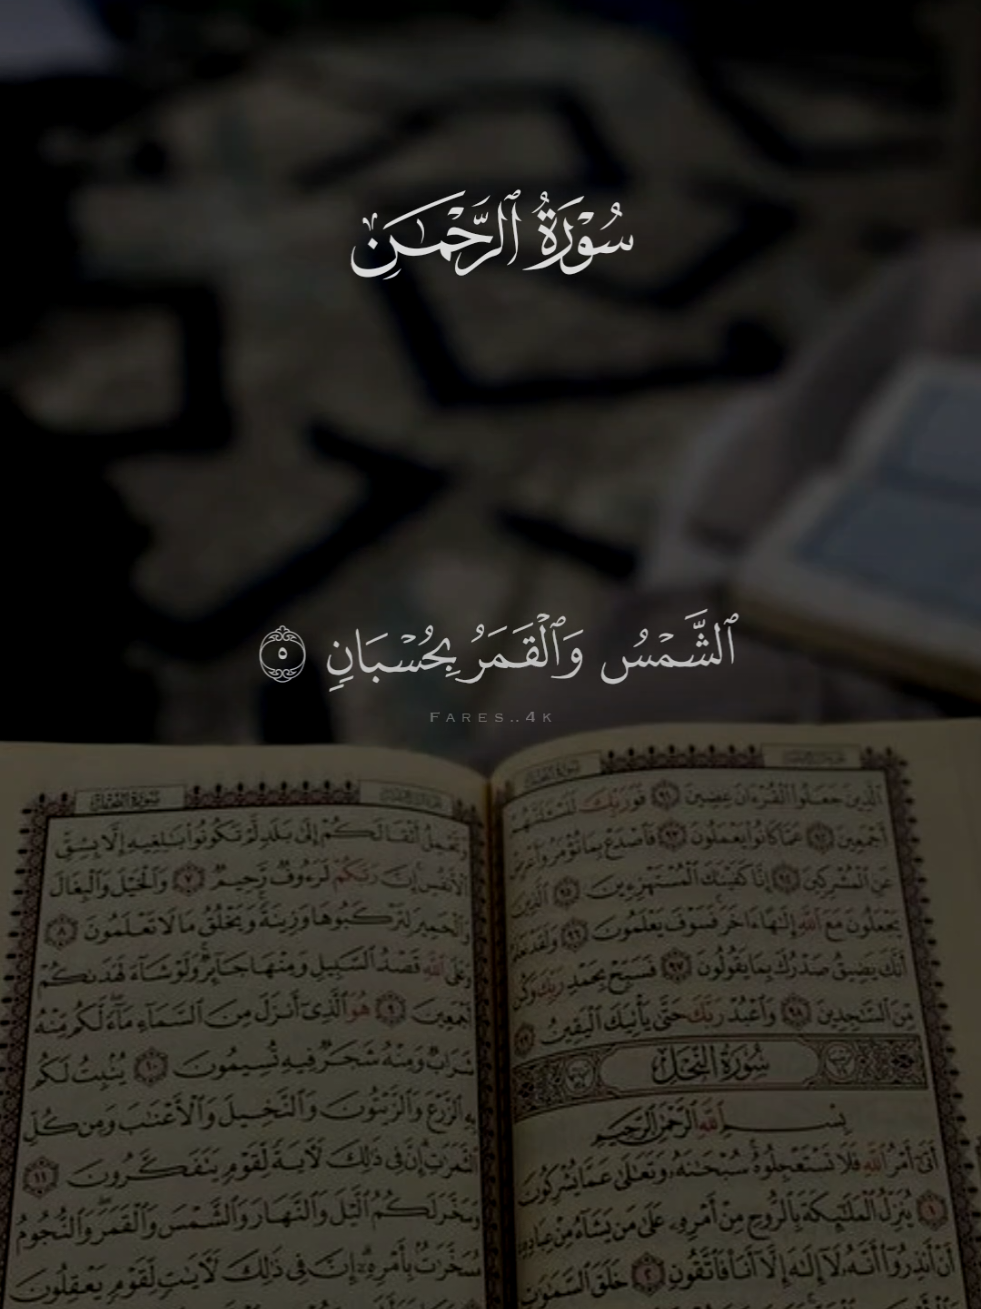 سُورَةُ ٱلرَّحْمَـٰن
ٱلشَّمْسُ وَٱلْقَمَرُ بِحُسْبَانٍ ٥
FARES..4K
سُورَةُ النَّحْلِ
الَّذِينَ جَعَلُوا الْقُرْءَانَ عِضِينَ ٩١ فَوَرَبِّكَ لَنَسْـَٔلَنَّهُمْ
أَجْمَعِينَ ٩٢ عَمَّا كَانُوا يَعْمَلُونَ ٩٣ فَاصْدَعْ بِمَا تُؤْمَرُ وَأَعْرِضْ
عَنِ الْمُشْرِكِينَ ٩٤ إِنَّا كَفَيْنَـٰكَ الْمُسْتَهْزِءِينَ ٩٥ الَّذِينَ
يَجْعَلُونَ مَعَ اللَّهِ إِلَـٰهًا ءَاخَرَ فَسَوْفَ يَعْلَمُونَ ٩٦ وَلَقَدْ نَعْلَمُ
أَنَّكَ يَضِيقُ صَدْرُكَ بِمَا يَقُولُونَ ٩٧ فَسَبِّحْ بِحَمْدِ رَبِّكَ وَكُن
مِّنَ السَّـٰجِدِينَ ٩٨ وَاعْبُدْ رَبَّكَ حَتَّىٰ يَأْتِيَكَ الْيَقِينُ ٩٩
سُورَةُ النَّحْلِ
بِسْمِ اللَّهِ الرَّحْمَـٰنِ الرَّحِيمِ
أَتَىٰٓ أَمْرُ اللَّهِ فَلَا تَسْتَعْجِلُوهُ سُبْحَـٰنَهُۥ وَتَعَـٰلَىٰ عَمَّا يُشْرِكُونَ
١ يُنَزِّلُ الْمَلَـٰٓئِكَةَ بِالرُّوحِ مِنْ أَمْرِهِۦ عَلَىٰ مَن يَشَآءُ مِنْ عِبَادِهِۦٓ
أَنْ أَنذِرُوٓا أَنَّهُۥ لَآ إِلَـٰهَ إِلَّآ أَنَا۠ فَاتَّقُونِ ٢ خَلَقَ السَّمَـٰوَٰتِ
سُورَةُ النَّحْلِ
وَتَحْمِلُ أَثْقَالَكُمْ إِلَىٰ بَلَدٍ لَّمْ تَكُونُوا بَـٰلِغِيهِ إِلَّا بِشِقِّ
الْأَنفُسِ إِنَّ رَبَّكُمْ لَرَءُوفٌ رَّحِيمٌ ٧ وَالْخَيْلَ وَالْبِغَالَ
وَالْحَمِيرَ لِتَرْكَبُوهَا وَزِينَةً وَيَخْلُقُ مَا لَا تَعْلَمُونَ ٨
وَعَلَى اللَّهِ قَصْدُ السَّبِيلِ وَمِنْهَا جَآئِرٌ وَلَوْ شَآءَ لَهَدَىٰكُمْ
أَجْمَعِينَ ٩ هُوَ الَّذِىٓ أَنزَلَ مِنَ السَّمَآءِ مَآءً لَّكُم مِّنْهُ
شَرَابٌ وَمِنْهُ شَجَرٌ فِيهِ تُسِيمُونَ ١٠ يُنۢبِتُ لَكُم
بِهِ الزَّرْعَ وَالزَّيْتُونَ وَالنَّخِيلَ وَالْأَعْنَـٰبَ وَمِن كُلِّ
الثَّمَرَٰتِ إِنَّ فِى ذَٰلِكَ لَـَٔايَةً لِّقَوْمٍ يَتَفَكَّرُونَ ١١
وَسَخَّرَ لَكُمُ الَّيْلَ وَالنَّهَارَ وَالشَّمْسَ وَالْقَمَرَ وَالنُّجُومُ
مُسَخَّرَٰتٌۢ بِأَمْرِهِۦٓ إِنَّ فِى ذَٰلِكَ لَـَٔايَـٰتٍ لِّقَوْمٍ يَعْقِلُونَ